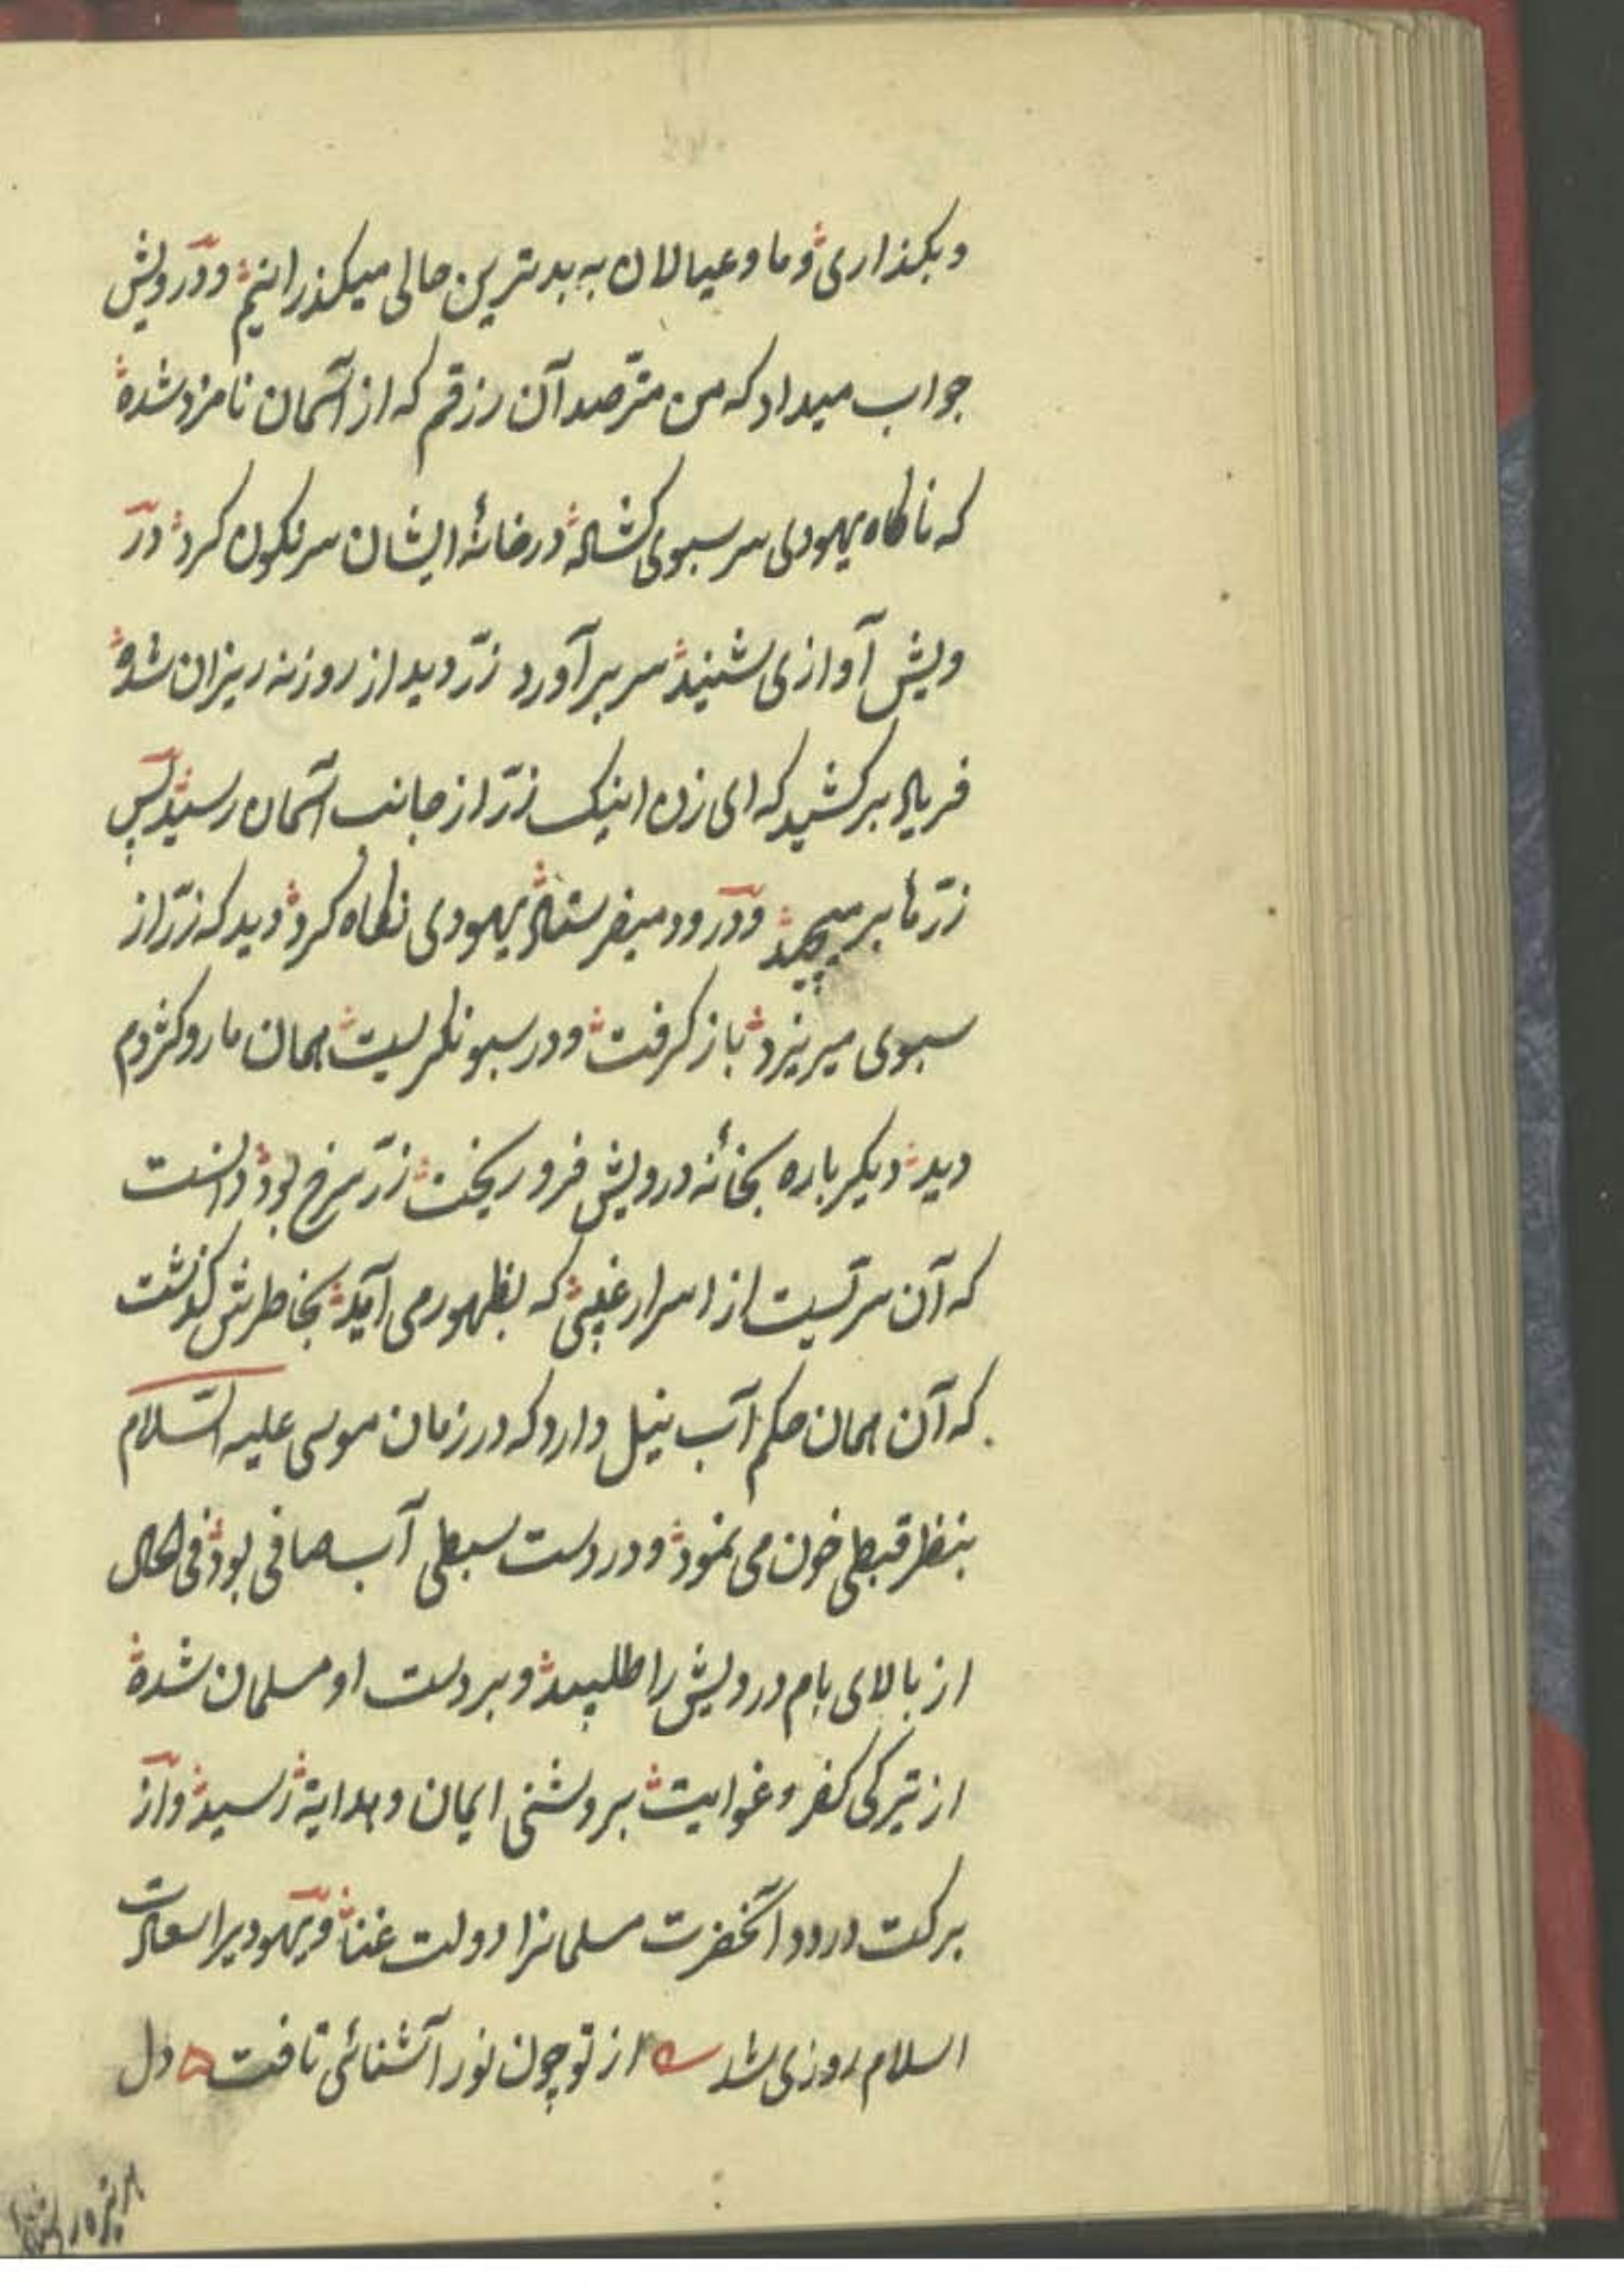 وبکذاری وما وعیالان به بدترین حالی میکذرانیم ودرویش
جواب میداد که من مترصد آن رزقم که از آسمان نامزد شده
که ناکاه یهودی سر سبوی کشاد درخانهٔ ایشان سرنکون کرد در
ویش آوازی شنید سر برآورد زرّ دید از روزنه ریزان شده
فریاد برکشید که ای زن اینک زرّ از جانب آسمان رسید پس
زرّها برمیچید ودرود میفرستاد یهودی نکاه کرد دید که زرّ از
سبوی میریزد باز کرفت ودر سبو نکریست همان مار وکژدم
دید دیکر باره بخانهٔ درویش فرو ریخت زرّ سرخ بود دانست
که آن سرّیست از اسرار غیبی که بظهور می آید بخاطرش کذشت
که آن همان حکم آب نیل دارد که در زمان موسی علیه السّلام
بنظر قبطی خون می نمود ودر دست سبطی آب صافی بود فی الحال
از بالای بام درویش را طلبید وبر دست او مسلمان شده
از تیرکی کفر وغوایت بروشنی ایمان وهدایة رسید واز
برکت درود آنحضرت مسلمانرا دولت غنا ویهودیرا سعادت
اسلام روزی شد از تو چون نور آشنائی تافت دل